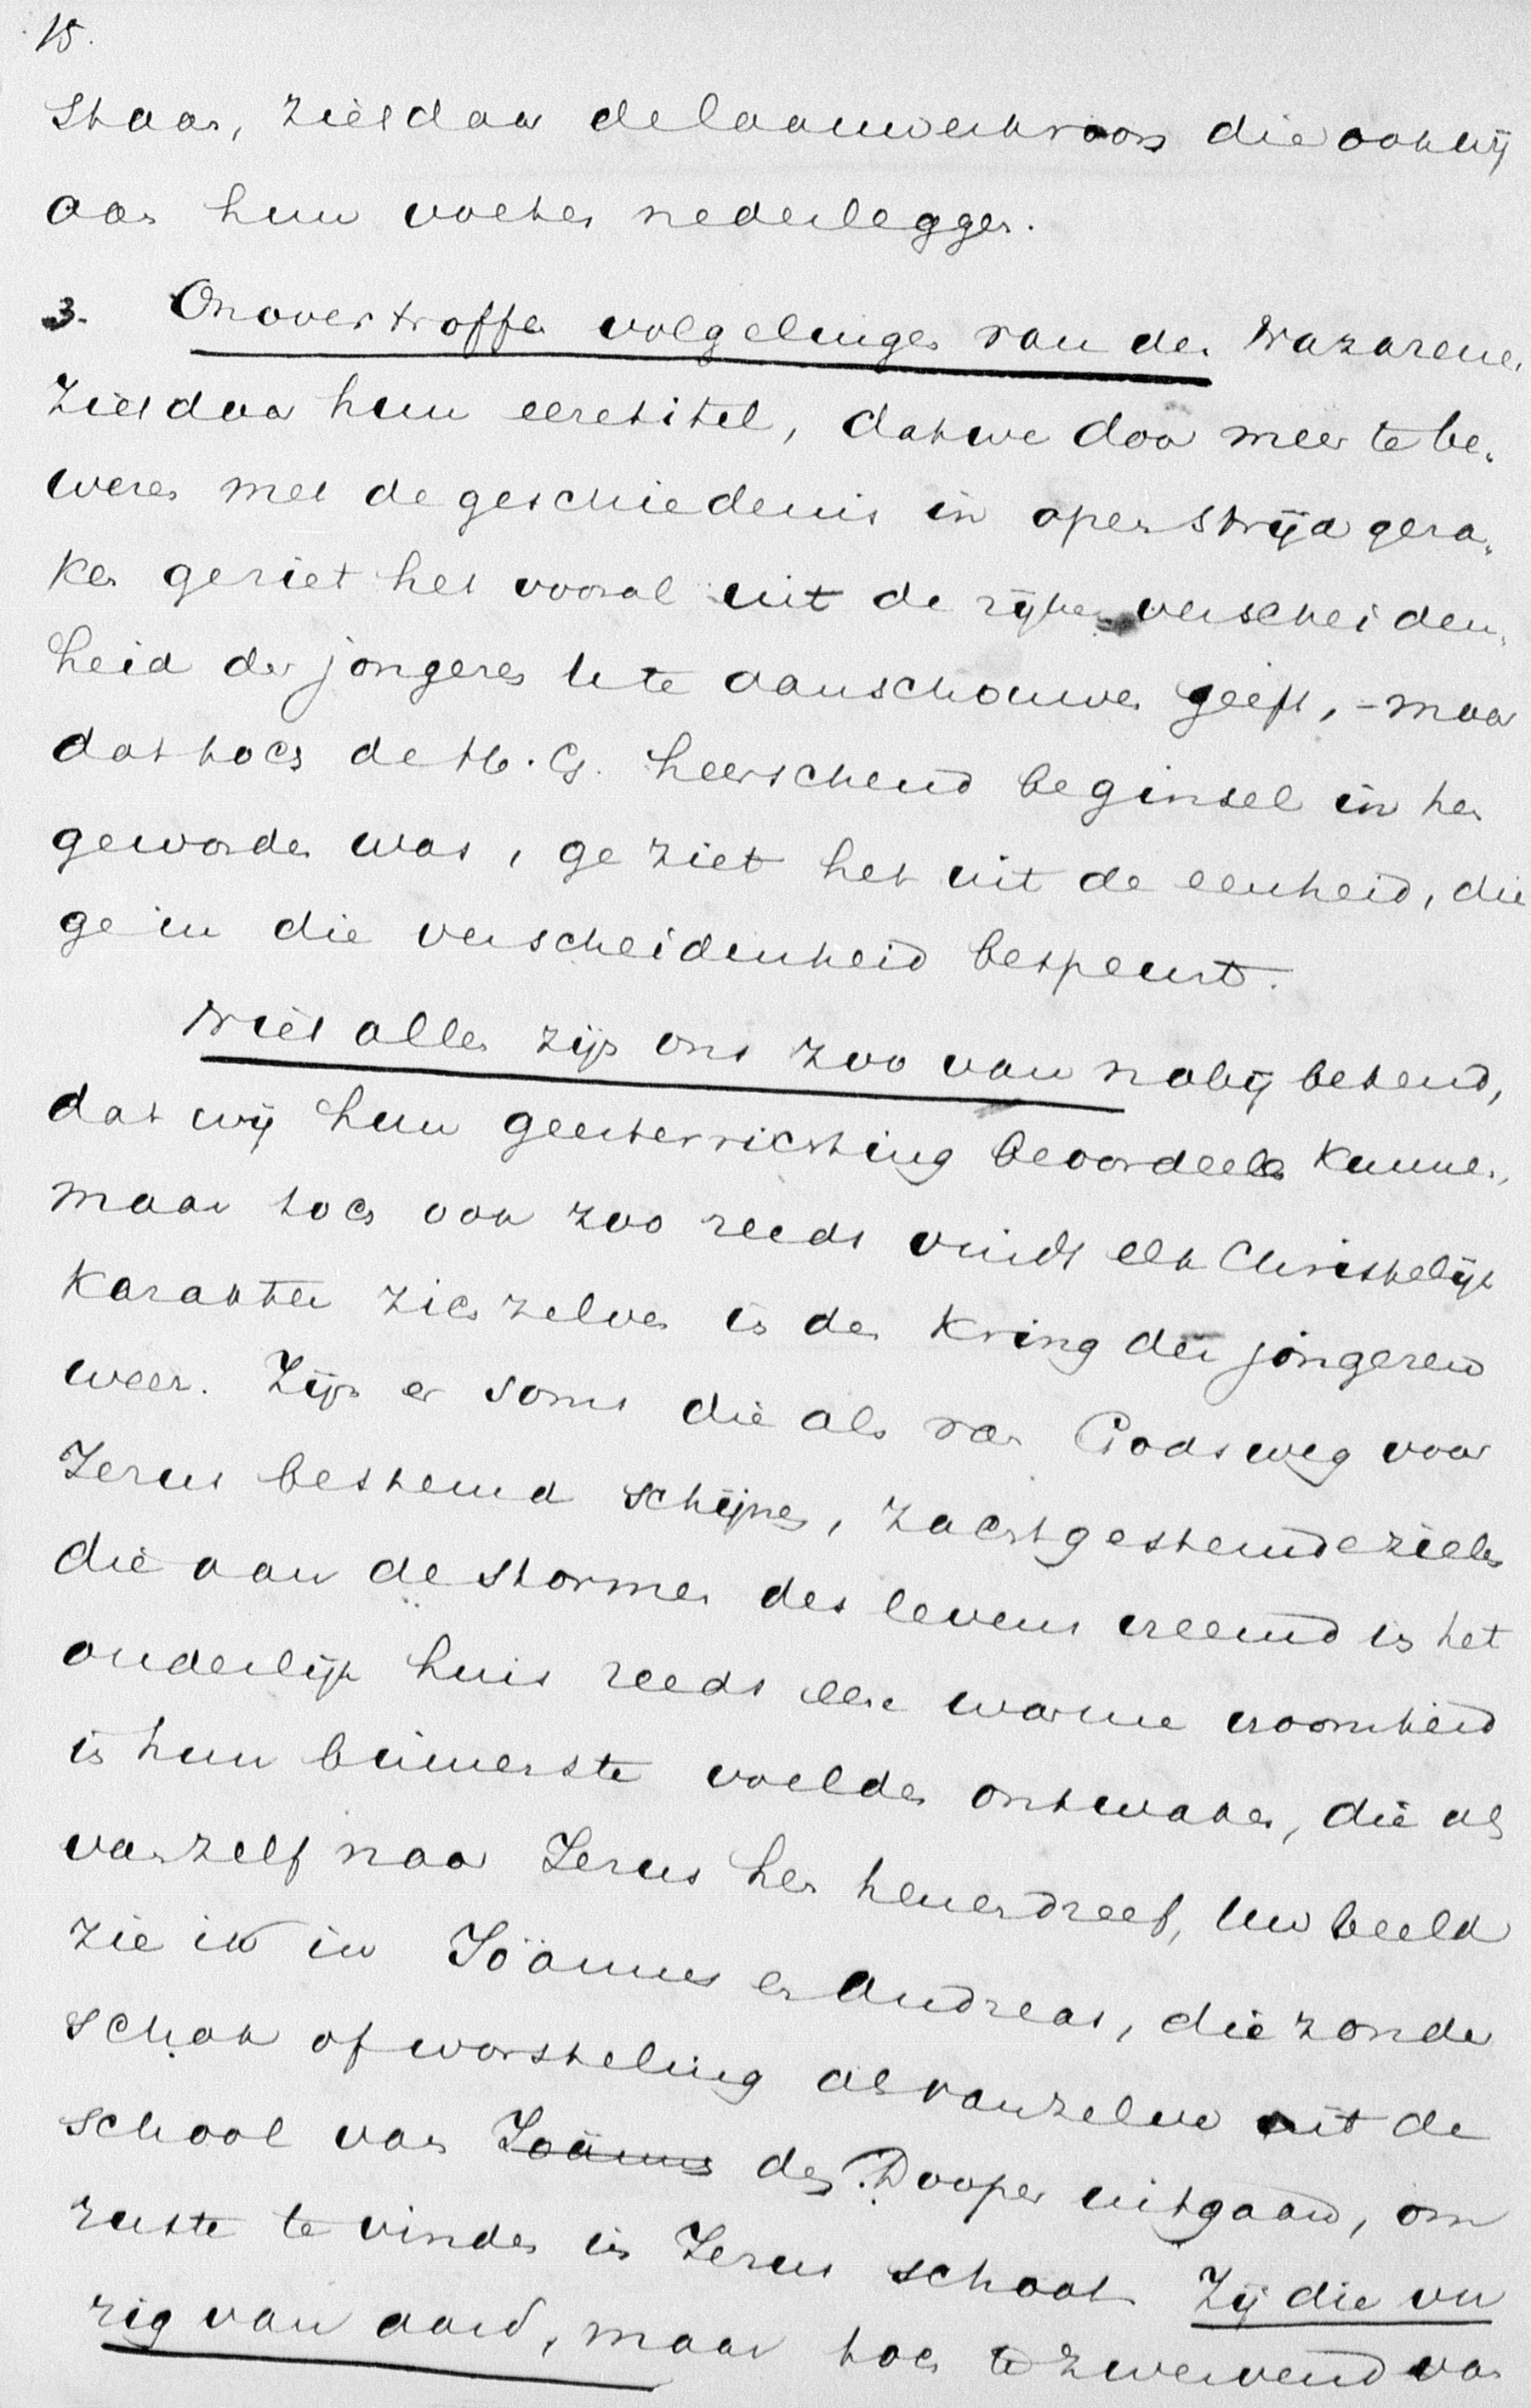 15.
staan, ziet daar de lauwerkroon die ook wij
aan hun voeten nederleggen.
3. Onovertroffen volgelingen van den Nazarener
ziet daar hun eeretitel, dat we daar meê te be-
weren met de geschiedenis in open strijd gera-
ken ge ziet het vooral uit de rijke verscheiden-
heid der jongeren U te aanschouwen geeft, - maar
dat toch de H. G. heerschend beginsel in hen
geworden was, ge ziet het uit de eenheid, die
ge in die verscheidenheid bespeurt.
Niet allen zijn ons zoo van nabij bekend,
dat wij hun geestesrichting beoordeelen kunnen,
maar toch ook zoo reeds vindt elk Christelijk
karakter zich zelven in den kring der jongeren
weer. Zijn er soms die als van Godsweg voor
Jezus bestemd schijnen, zacht gestemde zielen
die aan de stormen des levens vreemd in het
ouderlijk huis reeds eene warme vroomheid
in hun binnenste voelden ontwaken, die als
vanzelf naar Jezus hen henendreef, Uw beeld
zie ik in Joännes en Andreas, die zonder
schok of worsteling als vanzelve uit de
school van Joännes den Dooper uitgaan, om
ruste te vinden in Jezus schoot. Zij die vu
rig van aard, maar toch te zwevend van